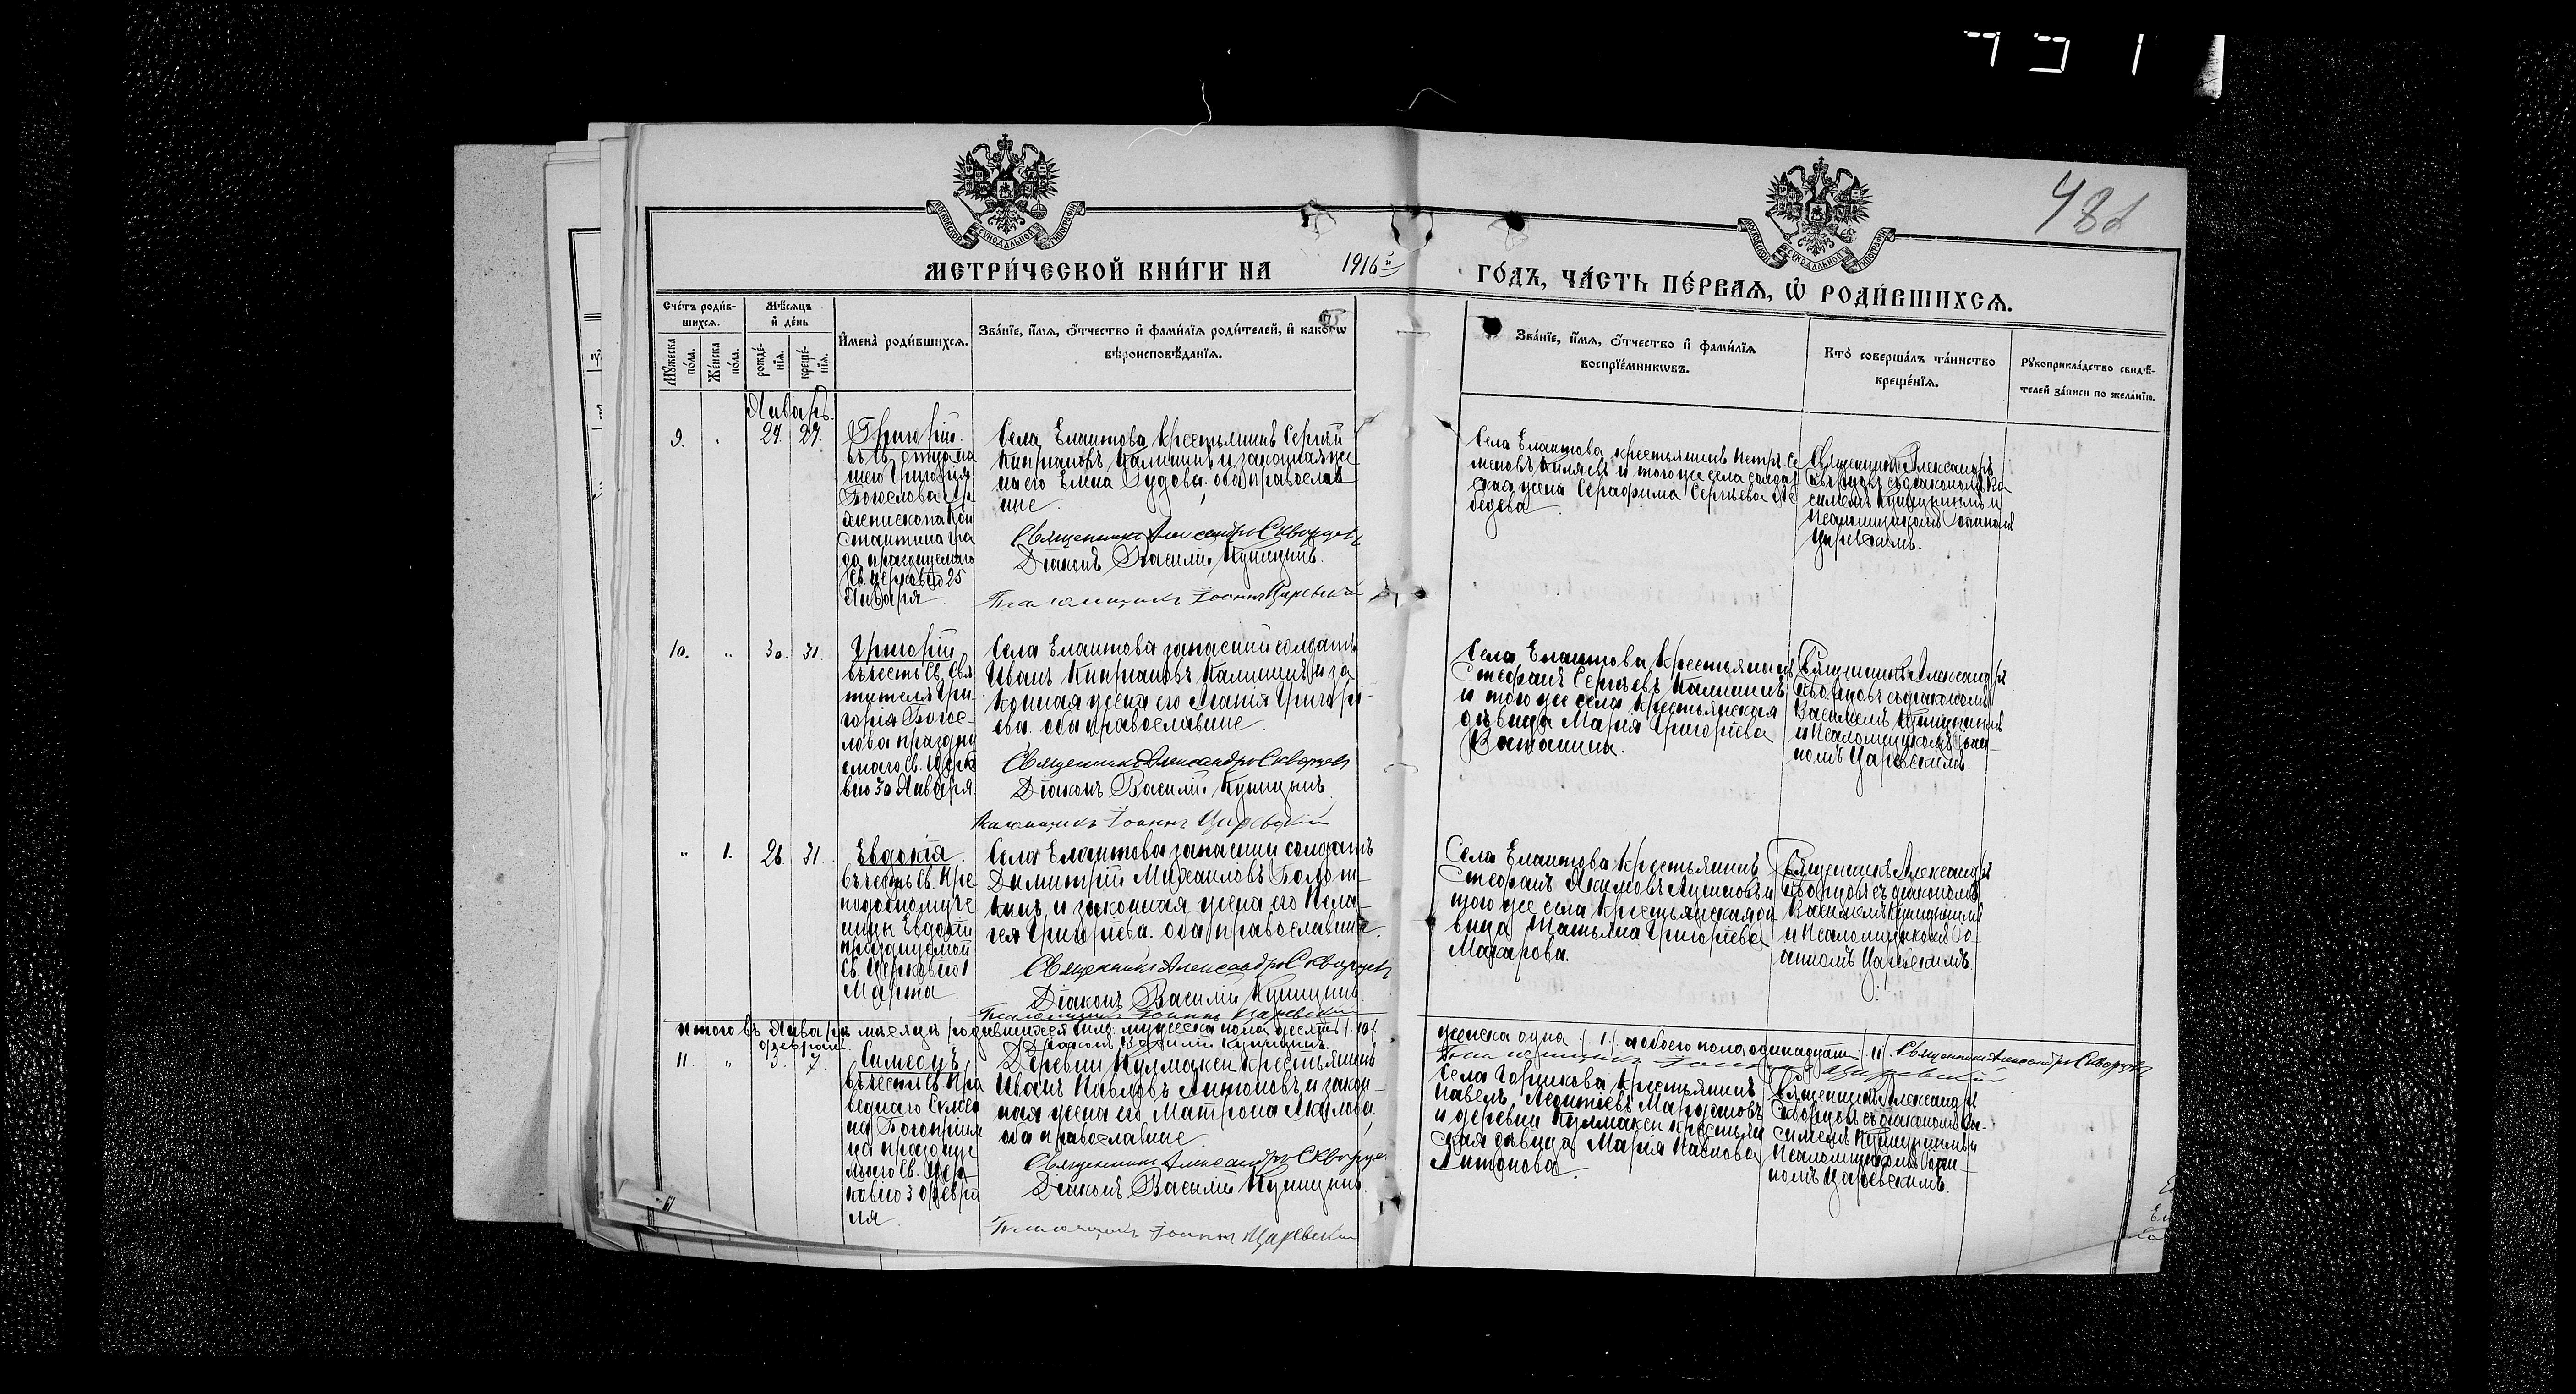 МОСКОВСКОЙ СУНОДАЛЬНОЙ ТИПОГРАФИИ
МОСКОВСКОЙ СУНОДАЛЬНОЙ ТИПОГРАФИИ
МЕТРИ́ЧЕСКОЙ КНИ́ГИ НА 1916й ГО́ДЪ, ЧА́СТЬ ПЕ́РВАѦ, Ѡ РОДИ́ВШИХСѦ.
Сче́тъ роди́в-
шихсѧ.
Мѣ́сѧцъ
и҆ де́нь
Мꙋ́жеска
по́ла.
Же́нска
по́ла.
рожде́-
нїѧ.
креще́-
нїѧ.
И҆мена̀ роди́вшихсѧ.
Зва́нїе, и҆́мѧ, ѻ҆́тчество и҆ фами́лїѧ роди́телей, и҆ како́гѡ
вѣроисповѣ́данїѧ.
Зва́нїе, и҆́мѧ, ѻ҆́тчество и҆ фами́лїѧ
воспрїе́мникѡвъ.
Кто̀ соверша́лъ та́инство
креще́нїѧ.
Рꙋкоприкла́дство свидѣ́-
телей за́писи по жела́нїю.
Январь.
9. 27. 27.
Григорій.
въ св. отца на
шего Григорія
Богослова Ар
хіепископа Кон
стантина гра
да празднуемаго
св. церковію 25
Января
Села Елаитова крестьянинъ Сергѣй
Кипріановъ Калининъ и законная же
на его Елена оба православ
ные.
Священникъ Александръ Скворцовъ
Діаконъ Василій Куницынъ.
Псаломщикъ Іоаннъ Царевскій
Села Елаитова крестьянинъ Петръ Се
меновъ и того же села солдат
ская жена Серафима Сергѣева Ле
бедева
Священникъ Александръ
Скворцовъ съ діакономъ Ва
силіемъ Куницынымъ и
Псаломщикомъ Іоанномъ
Царевскимъ.
10. " 30. 31.
Григорій
въ честь св. Свя
тителя Гри
горія Богос-
лова праздну
емаго св. Церк
вію 30 Января.
Села Елаитова запасный солдатъ
Иванъ Кипріановъ Калининъ и за
конная жена его Григорі-
ева. оба православные.
Священникъ Александръ Скворцовъ
Діаконъ Василій Куницынъ
Псаломщикъ Іоаннъ Царевскій
Села Елаитова крестьянинъ
Стефанъ Сергѣевъ Калининъ
и того же села крестьянская
дѣвица Марія Григоріева
Священникъ Александръ
Скворцовъ съ діакономъ
Василіемъ Куницынымъ
и Псаломщикомъ Іоан-
номъ Царевскимъ.
" 1. 26. 31.
Евдокія.
въ честь св. Пре
подобномуче
ницы Евдокіи
празднуемой
св. Церковію 1
Марта.
Села Елаитова запасный солдатъ
Димитрій Михаиловъ Болот-
кинъ и законная жена его Пела-
гея Григоріева. оба православные.
Священникъ Александръ Скворцовъ
Діаконъ Василій Куницынъ
Псаломщикъ Іоаннъ Царевскій
Села Елаитова крестьянинъ
Стефанъ Акимовъ и
того же села крестьянская дѣ
вица Татьяна Григоріева
Макарова.
Священникъ Александръ
Скворцовъ съ діакономъ
Василіемъ Куницынымъ
и Псаломщикомъ Іо-
анномъ Царевскимъ.
Итого въ Январѣ мѣсяцѣ родившихся было: мужеска пола десять /10/.
женска одна /1/. а обоего пола одинадцать /11/. Священникъ Александръ Скворцовъ
Діаконъ Василій Куницынъ.
Псаломщикъ Іоаннъ Царевскій
Февраль.
11. " 3. 7.
Симеонъ.
въ честь св. Пра
веднаго Симео
на Богопріим
ца праздну
емаго св. Цер-
ковію 3 Февра
ля.
Деревни Кулмаксы крестьянинъ
Иванъ Павловъ Антоновъ и закон-
ная жена его Матрона Акулова.
оба православные.
Священникъ Александръ Скворцовъ
Діаконъ Василій Куницынъ.
Псаломщикъ Іоаннъ Царевскій
Села Горшкова крестьянинъ
Павелъ
и деревни Кулмаксы крестьян
ская дѣвица Марія Павлова
Антонова.
Священникъ Александръ
Скворцовъ съ діакономъ Ва-
силіемъ Куницынымъ и
Псаломщикомъ Іоан-
номъ Царевскимъ.